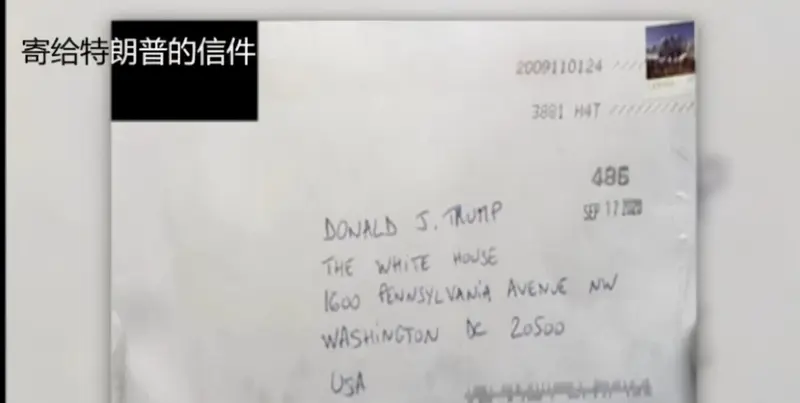 寄给特朗普的信件
2009110124
3881 H4T
486
SEP 17 2020
DONALD J. TRUMP
THE WHITE HOUSE
1600 PENNSYLVANIA AVENUE NW
WASHINGTON DC 20500
USA